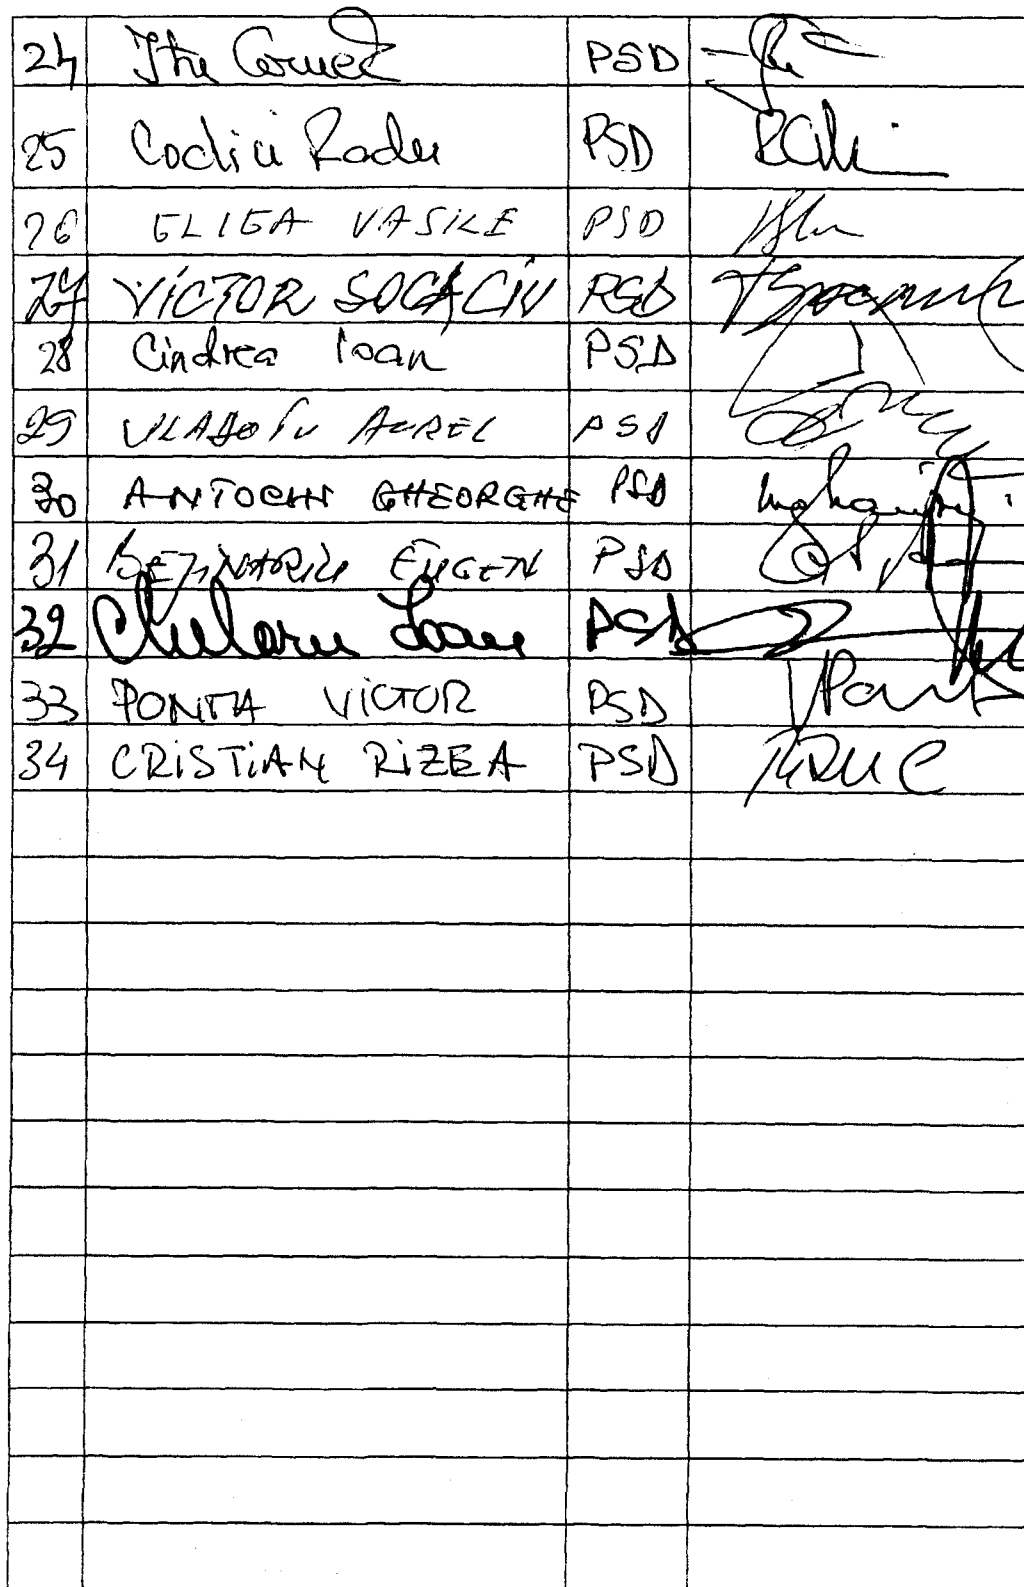 24 Itu Cornel PSD
25 Codîrlă Radu PSD
26 ELIEA VASILE PSD
27 VICTOR SOCACIU PSD
28 Cindrea Ioan PSD
29 VLĂDOIU AUREL PSD
30 ANTOCHI GHEORGHE PSD
31 BEJINARIU EUGEN PSD
32 Chelaru Ioan PSD
33 PONTA VICTOR PSD
34 CRISTIAN RIZEA PSD